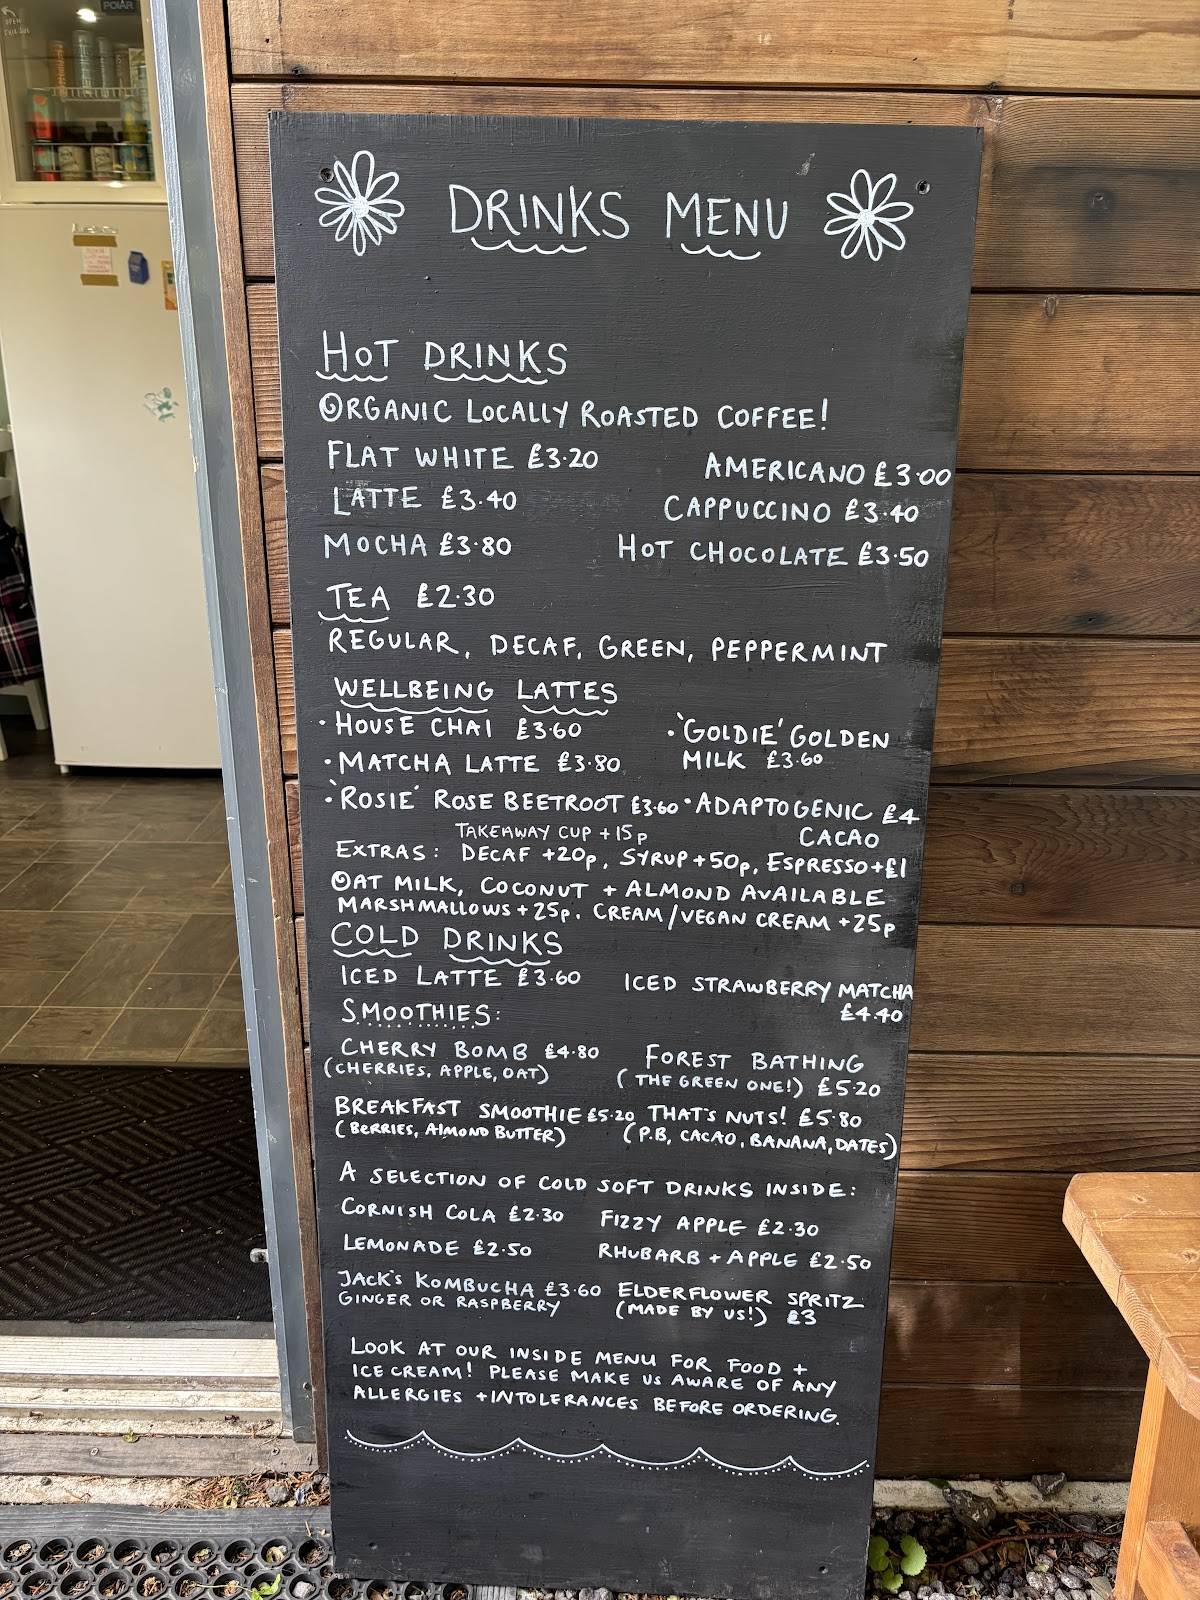 POLAR
DRINKS MENU
HOT DRINKS
ORGANIC LOCALLY ROASTED COFFEE!
FLAT WHITE £3.20 AMERICANO £3.00
LATTE £3.40 CAPPUCCINO £3.40
MOCHA £3.80 HOT CHOCOLATE £3.50
TEA £2.30
REGULAR, DECAF, GREEN, PEPPERMINT
WELLBEING LATTES
• HOUSE CHAI £3.60 • 'GOLDIE' GOLDEN
• MATCHA LATTE £3.80 MILK £3.60
• 'ROSIE' ROSE BEETROOT £3.60 • ADAPTOGENIC £4
TAKEAWAY CUP +15p CACAO
EXTRAS: DECAF +20p, SYRUP +50p, ESPRESSO +£1
OAT MILK, COCONUT + ALMOND AVAILABLE
MARSHMALLOWS + 25p. CREAM/VEGAN CREAM +25p
COLD DRINKS
ICED LATTE £3.60 ICED STRAWBERRY MATCHA
£4.40
SMOOTHIES:
CHERRY BOMB £4.80 FOREST BATHING
(CHERRIES, APPLE, OAT) (THE GREEN ONE!) £5.20
BREAKFAST SMOOTHIE £5.20 THAT'S NUTS! £5.80
(BERRIES, ALMOND BUTTER) (P.B, CACAO, BANANA, DATES)
A SELECTION OF COLD SOFT DRINKS INSIDE:
CORNISH COLA £2.30 FIZZY APPLE £2.30
LEMONADE £2.50 RHUBARB + APPLE £2.50
JACK'S KOMBUCHA £3.60 ELDERFLOWER SPRITZ
GINGER OR RASPBERRY (MADE BY US!) £3
LOOK AT OUR INSIDE MENU FOR FOOD +
ICE CREAM! PLEASE MAKE US AWARE OF ANY
ALLERGIES + INTOLERANCES BEFORE ORDERING.